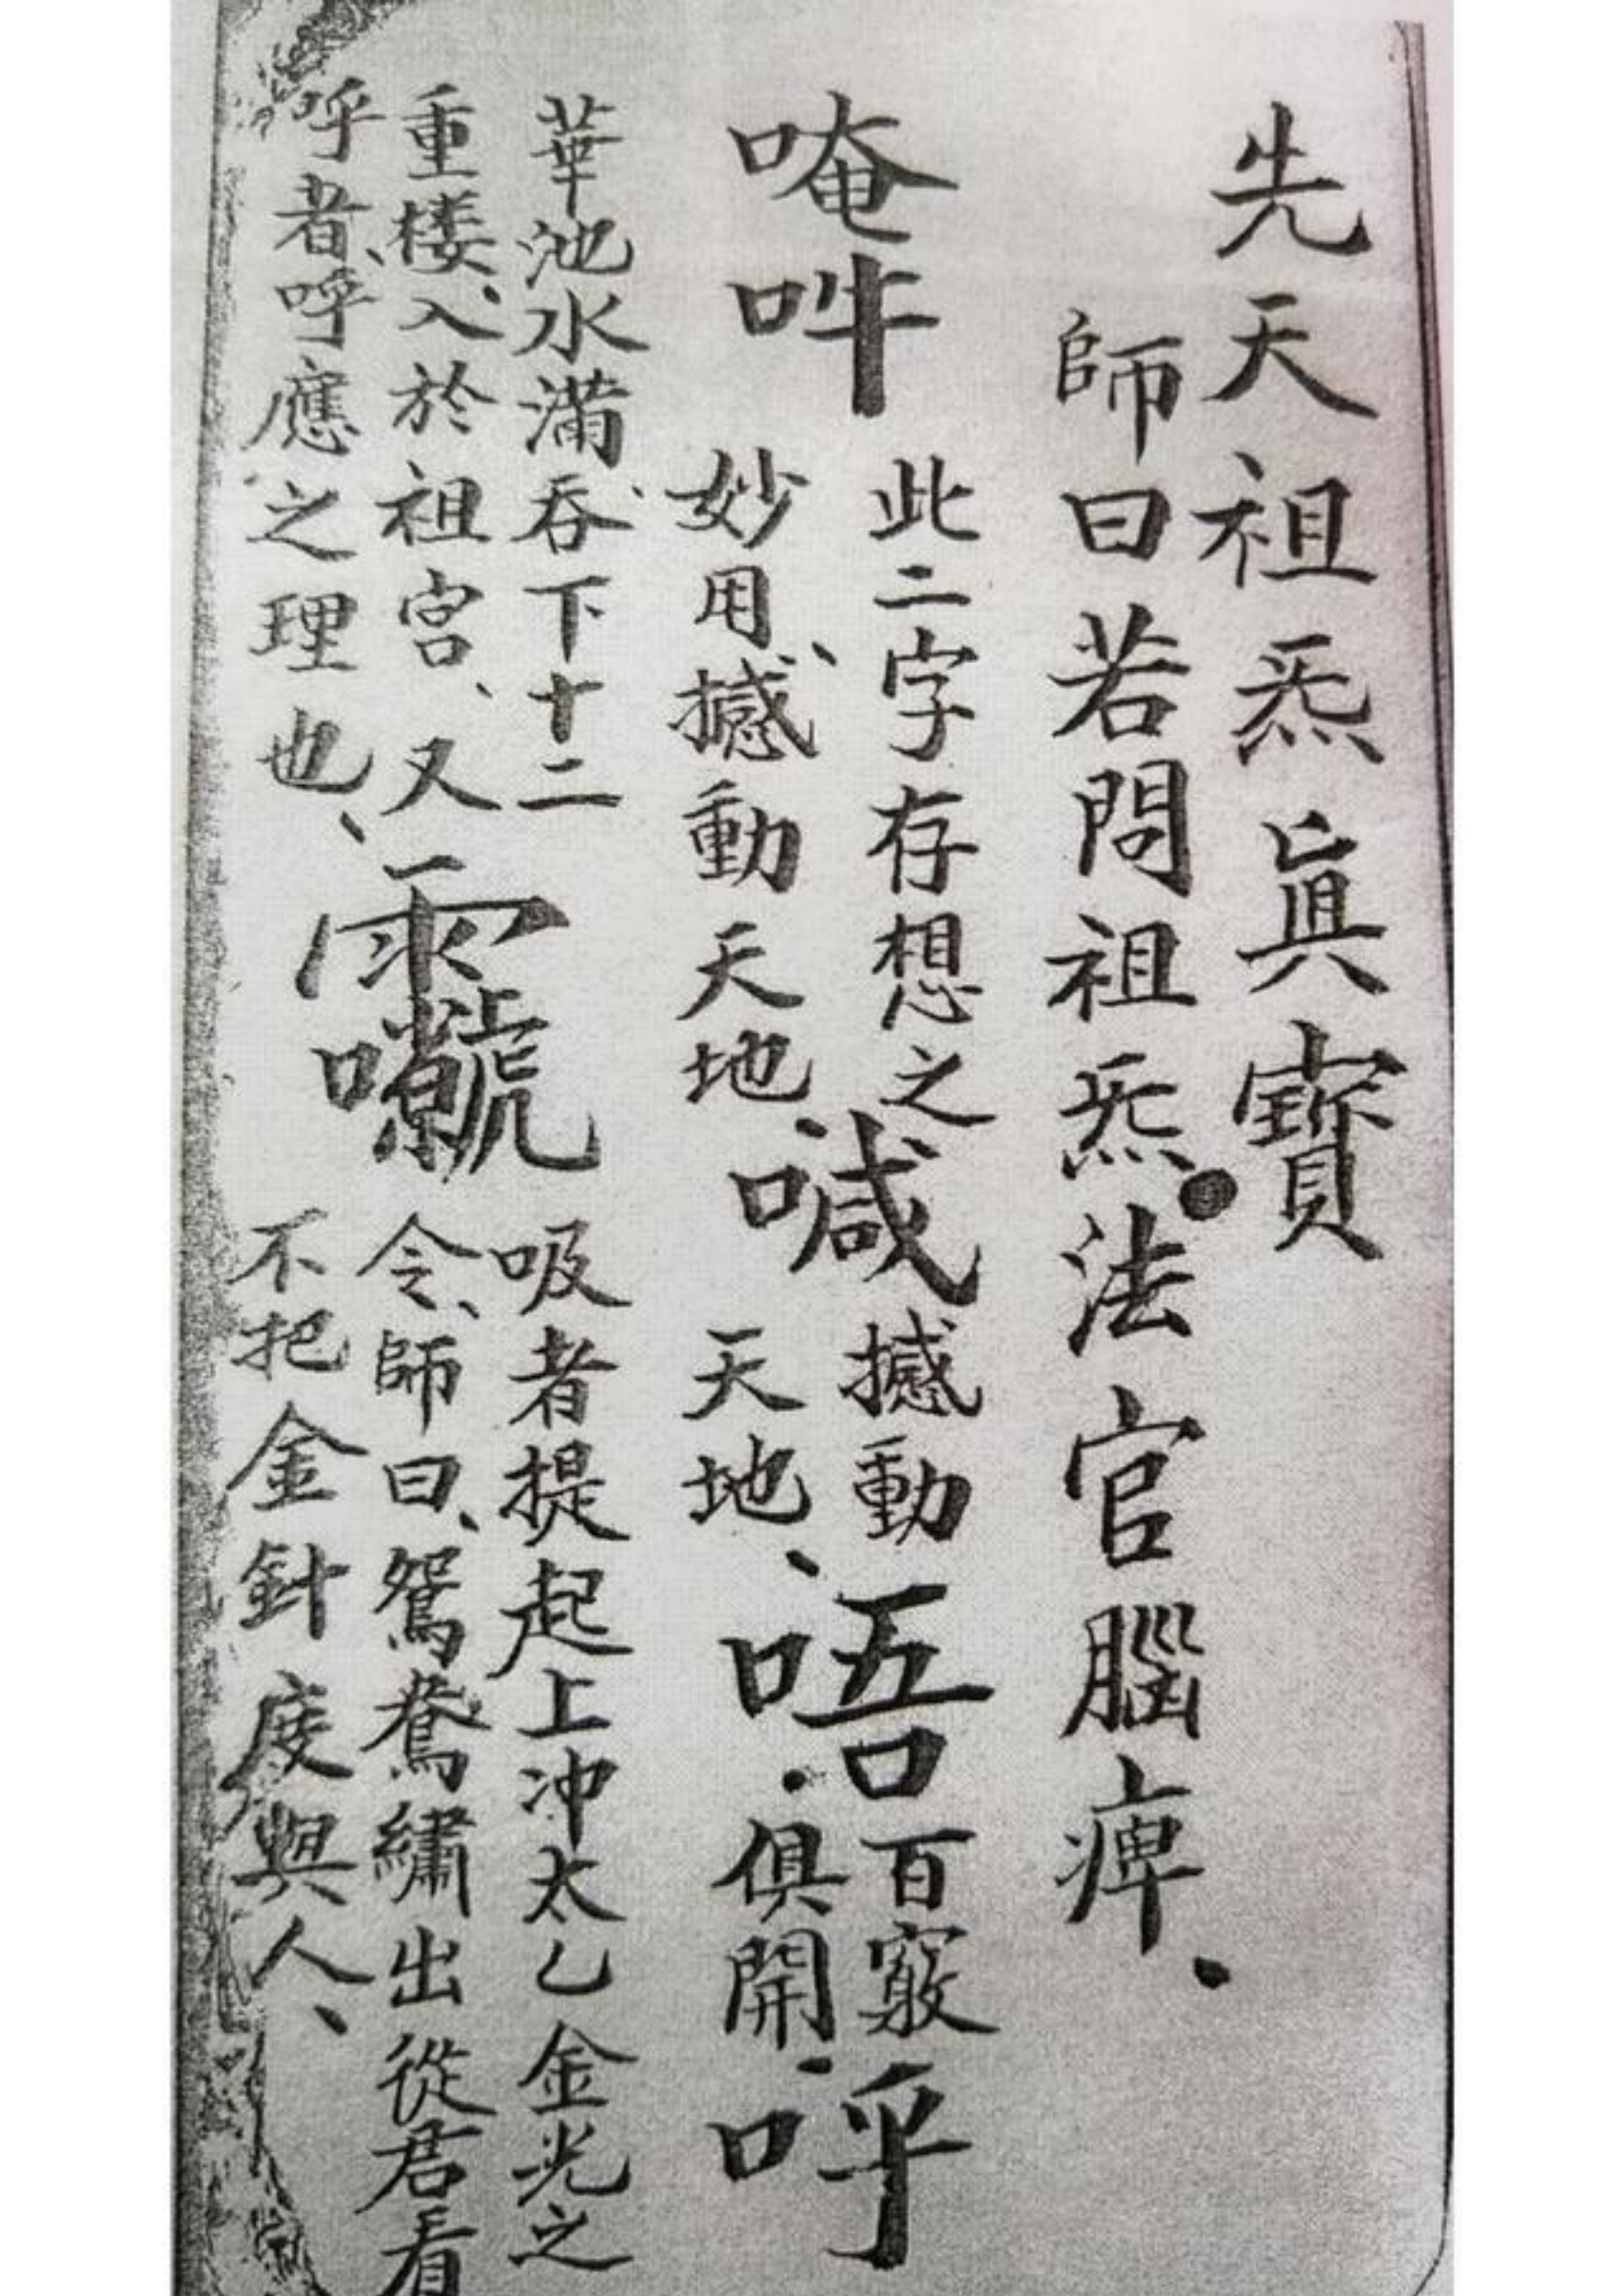 先天祖炁眞寳
師曰若問祖炁法官腦痺
唵吽
此二字存想之
妙用撼動天地
喊
撼動
天地
唔
百竅
俱開
呼
華池水滿吞下十二
重楼入於祖宮又
呼者呼應之理也
吸者提起上冲太乙金光之
令師曰鴛鴦繡出從君看
不把金針度與人